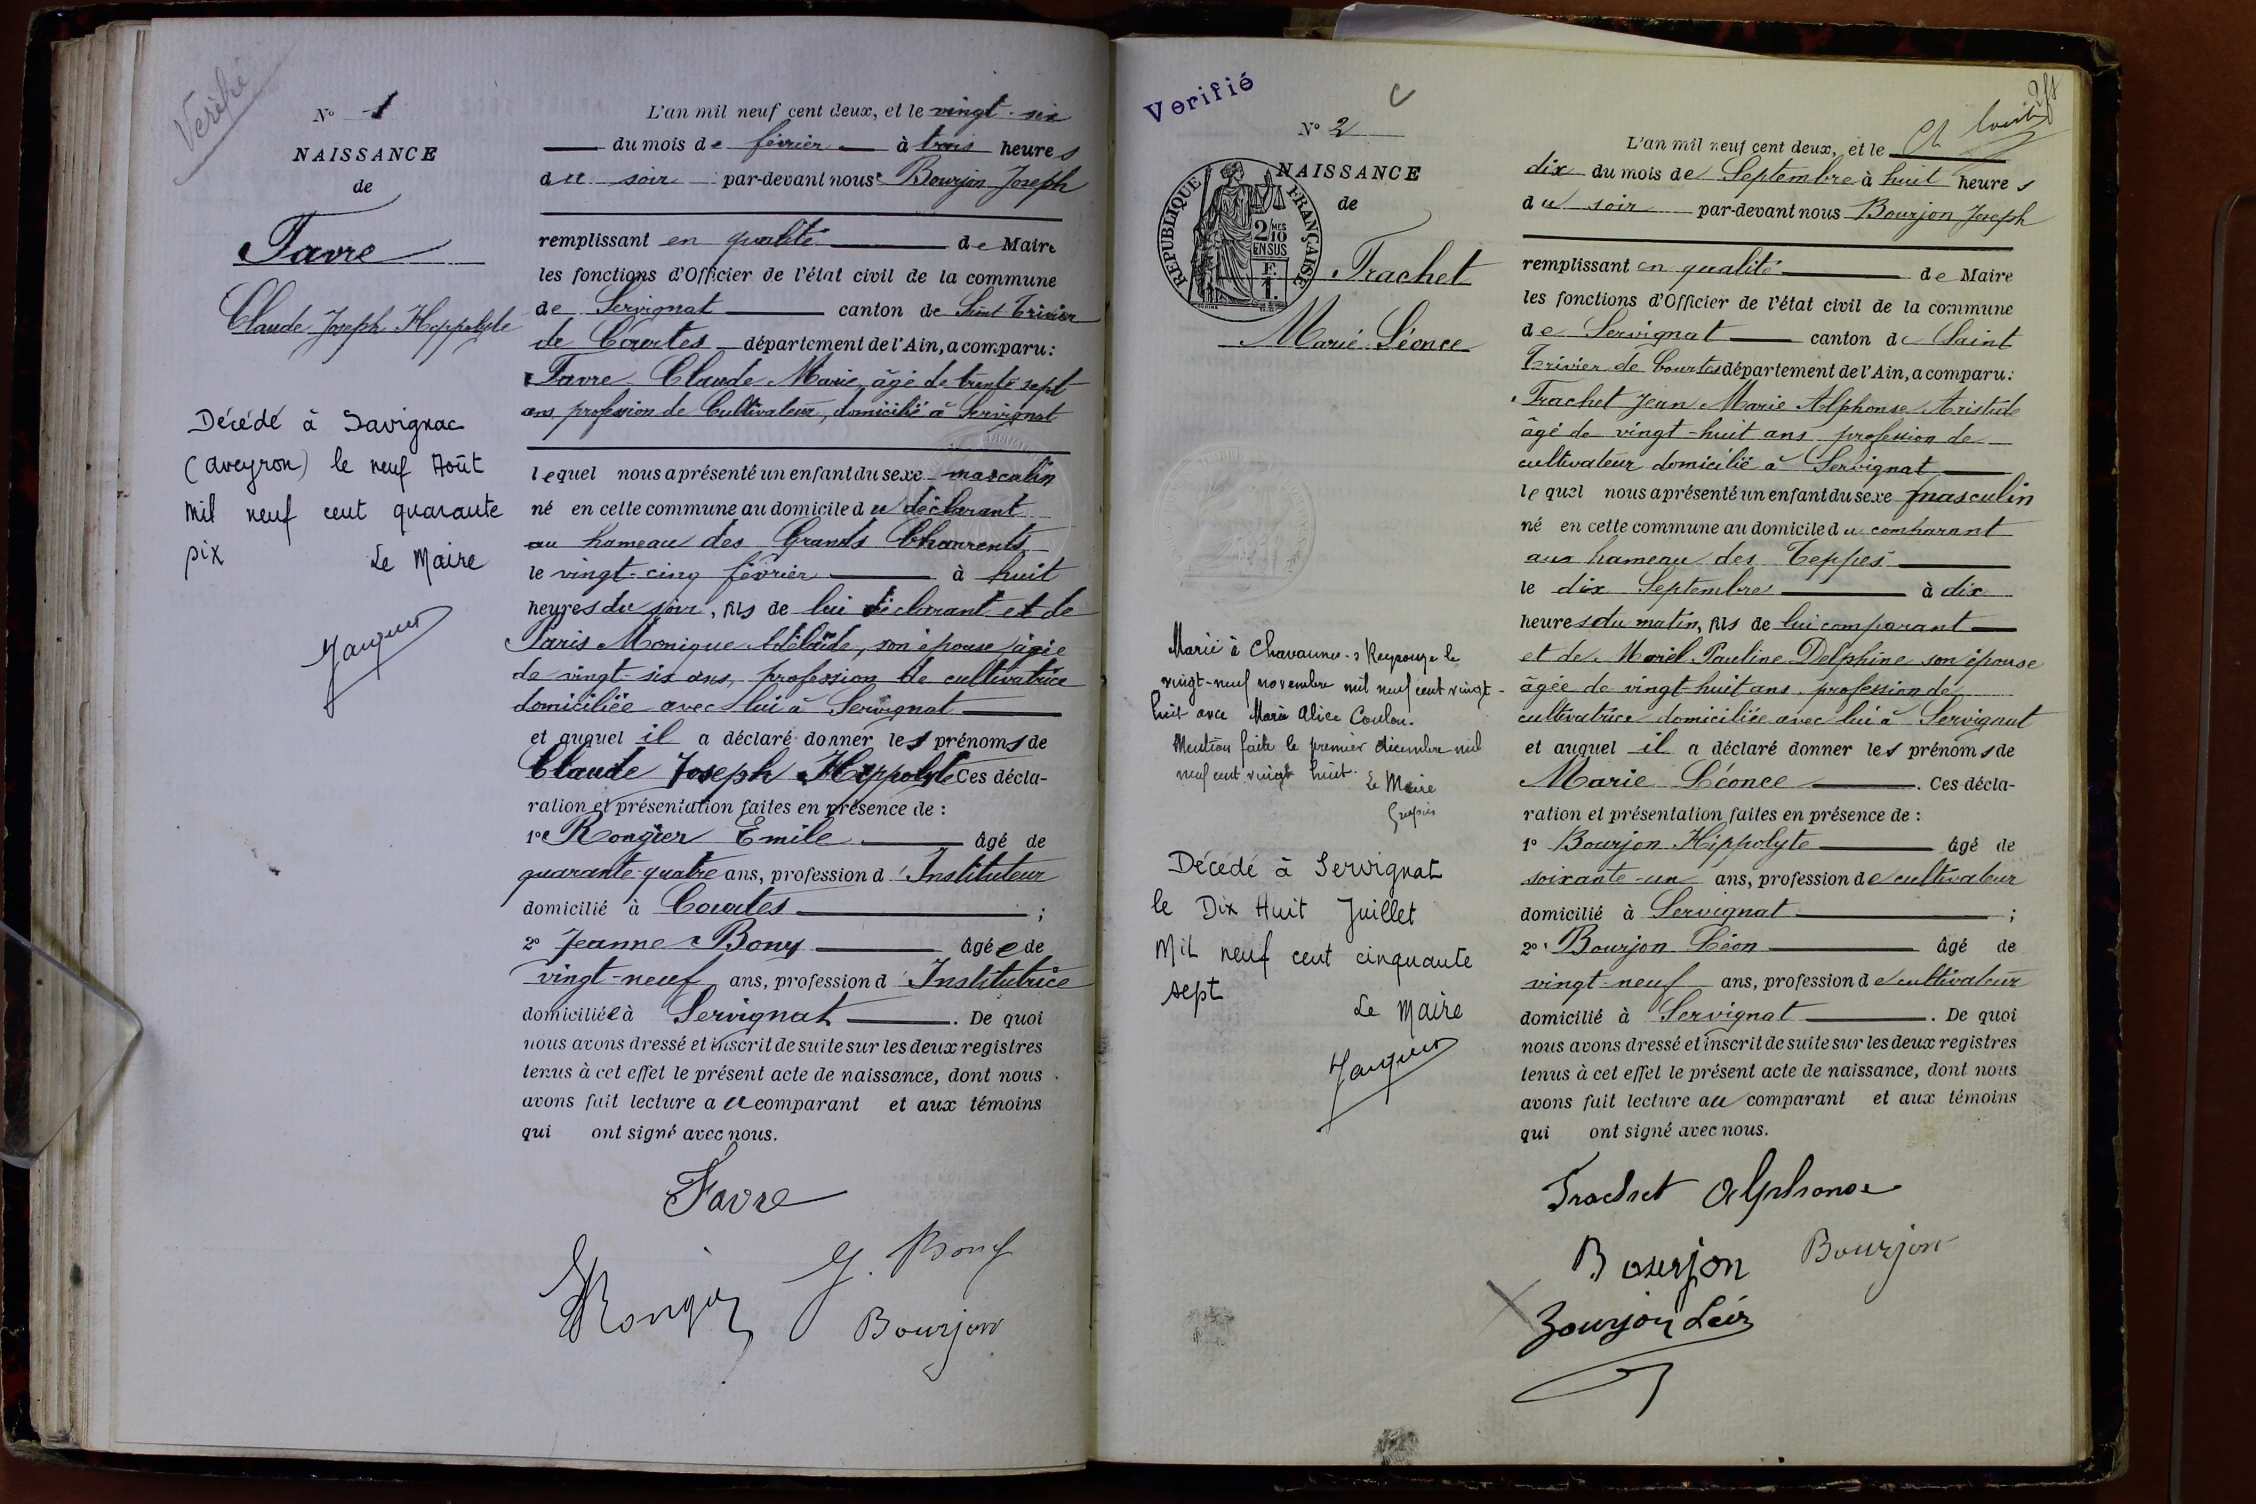 Vérifié
N° 1
NAISSANCE
de
Favre
Claude Joseph Hippolyte
Décédé à Savignac
(Aveyron) le neuf Août
Mil neuf cent quarante
six Le Maire
L'an mil neuf cent deux, et le vingt-six
du mois de février à trois heures
du soir par-devant nous Bourjon Joseph
remplissant en qualité de Maire
les fonctions d'Officier de l'état civil de la commune
de Servignat canton de Saint Trivier
de Courtes département de l'Ain, a comparu:
Favre Claude Marie, âgé de trente sept
ans profession de Cultivateur, domicilié à Servignat
lequel nous a présenté un enfant du sexe masculin
né en cette commune au domicile du déclarant
au hameau des Grands
le vingt-cinq février à huit
heures du soir, fils de lui déclarant et de
Paris Monique Adélaïde, son épouse âgée
de vingt-six ans, profession de cultivatrice
domiciliée avec lui à Servignat
et auquel il a déclaré donner les prénoms de
Claude Joseph Hippolyte Ces décla-
ration et présentation faites en présence de :
1° Rongier Emile âgé de
quarante-quatre ans, profession d'Instituteur
domicilié à Courtes ;
2° Jeanne Bony âgée de
vingt-neuf ans, profession d'Institutrice
domiciliée à Servignat. De quoi
nous avons dressé et inscrit de suite sur les deux registres
tenus à cet effet le présent acte de naissance, dont nous
avons fait lecture au comparant et aux témoins
qui ont signé avec nous.
Favre
Rongier J. Bony
Bourjon
Verifié
N° 2
NAISSANCE
de
RÉPUBLIQUE FRANÇAISE
2/10 MES
EN SUS
F.
1.
Trachet
Marie Léonce
Marié à Chavannes s Reyssouze le
vingt-neuf novembre mil neuf cent vingt-
huit avec Marie Alice Coulon.
Mention faite le premier décembre mil
neuf cent vingt huit.
Le Maire
Décédé à Servignat
le Dix Huit Juillet
Mil neuf cent cinquante
sept
Le Maire
L'an mil neuf cent deux, et le
dix du mois de Septembre à huit heures
du soir par-devant nous Bourjon Joseph
remplissant en qualité de Maire
les fonctions d'Officier de l'état civil de la commune
de Servignat canton de Saint
Trivier de Courtes département de l'Ain, a comparu:
Trachet Jean Marie Alphonse Aristide
âgé de vingt-huit ans profession de
cultivateur domicilié à Servignat
lequel nous a présenté un enfant du sexe masculin
né en cette commune au domicile du comparant
au hameau des Teppes
le dix Septembre à dix
heures du matin, fils de lui comparant
et de Morel Pauline Delphine son épouse
âgée de vingt-huit ans. profession de
cultivatrice domiciliée avec lui à Servignat
et auquel il a déclaré donner les prénoms de
Marie Léonce. Ces décla-
ration et présentation faites en présence de :
1° Bourjon Hippolyte âgé de
soixante-un ans, profession de cultivateur
domicilié à Servignat ;
2° Bourjon Léon âgé de
vingt-neuf ans, profession de cultivateur
domicilié à Servignat. De quoi
nous avons dressé et inscrit de suite sur les deux registres
tenus à cet effet le présent acte de naissance, dont nous
avons fait lecture au comparant et aux témoins
qui ont signé avec nous.
Trachet Alphonse
Bourjon Bourjon
Bourjon Léon